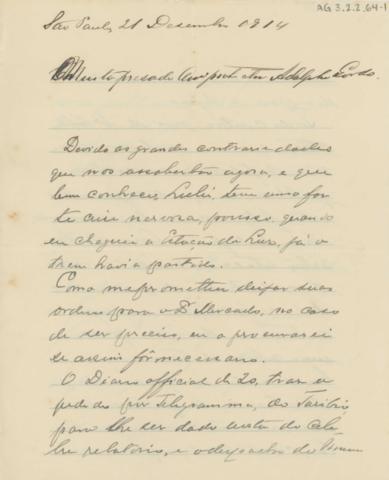 AG 3.2.2.64-1
São Paulo, 21 Dezembro 1914
Muito presado Amº Adolpho Gordo.
Devido as grandes contrariedades
que nos assoberbão agora, e que
bem conhece, teve uma for
te crise nervosa, por isso, quando
eu cheguei a Estação da Luz, já o
trem havia partido.
Como me prometteu deixar suas
ordens para o Dr no caso
de ser preciso, eu o procurarei
se assim fôr necessario.
O Diario official de 20, traz o
pedido por Telegramma, do Toribio
para lhe ser dado vista do cele
bre relatorio, e o despacho do